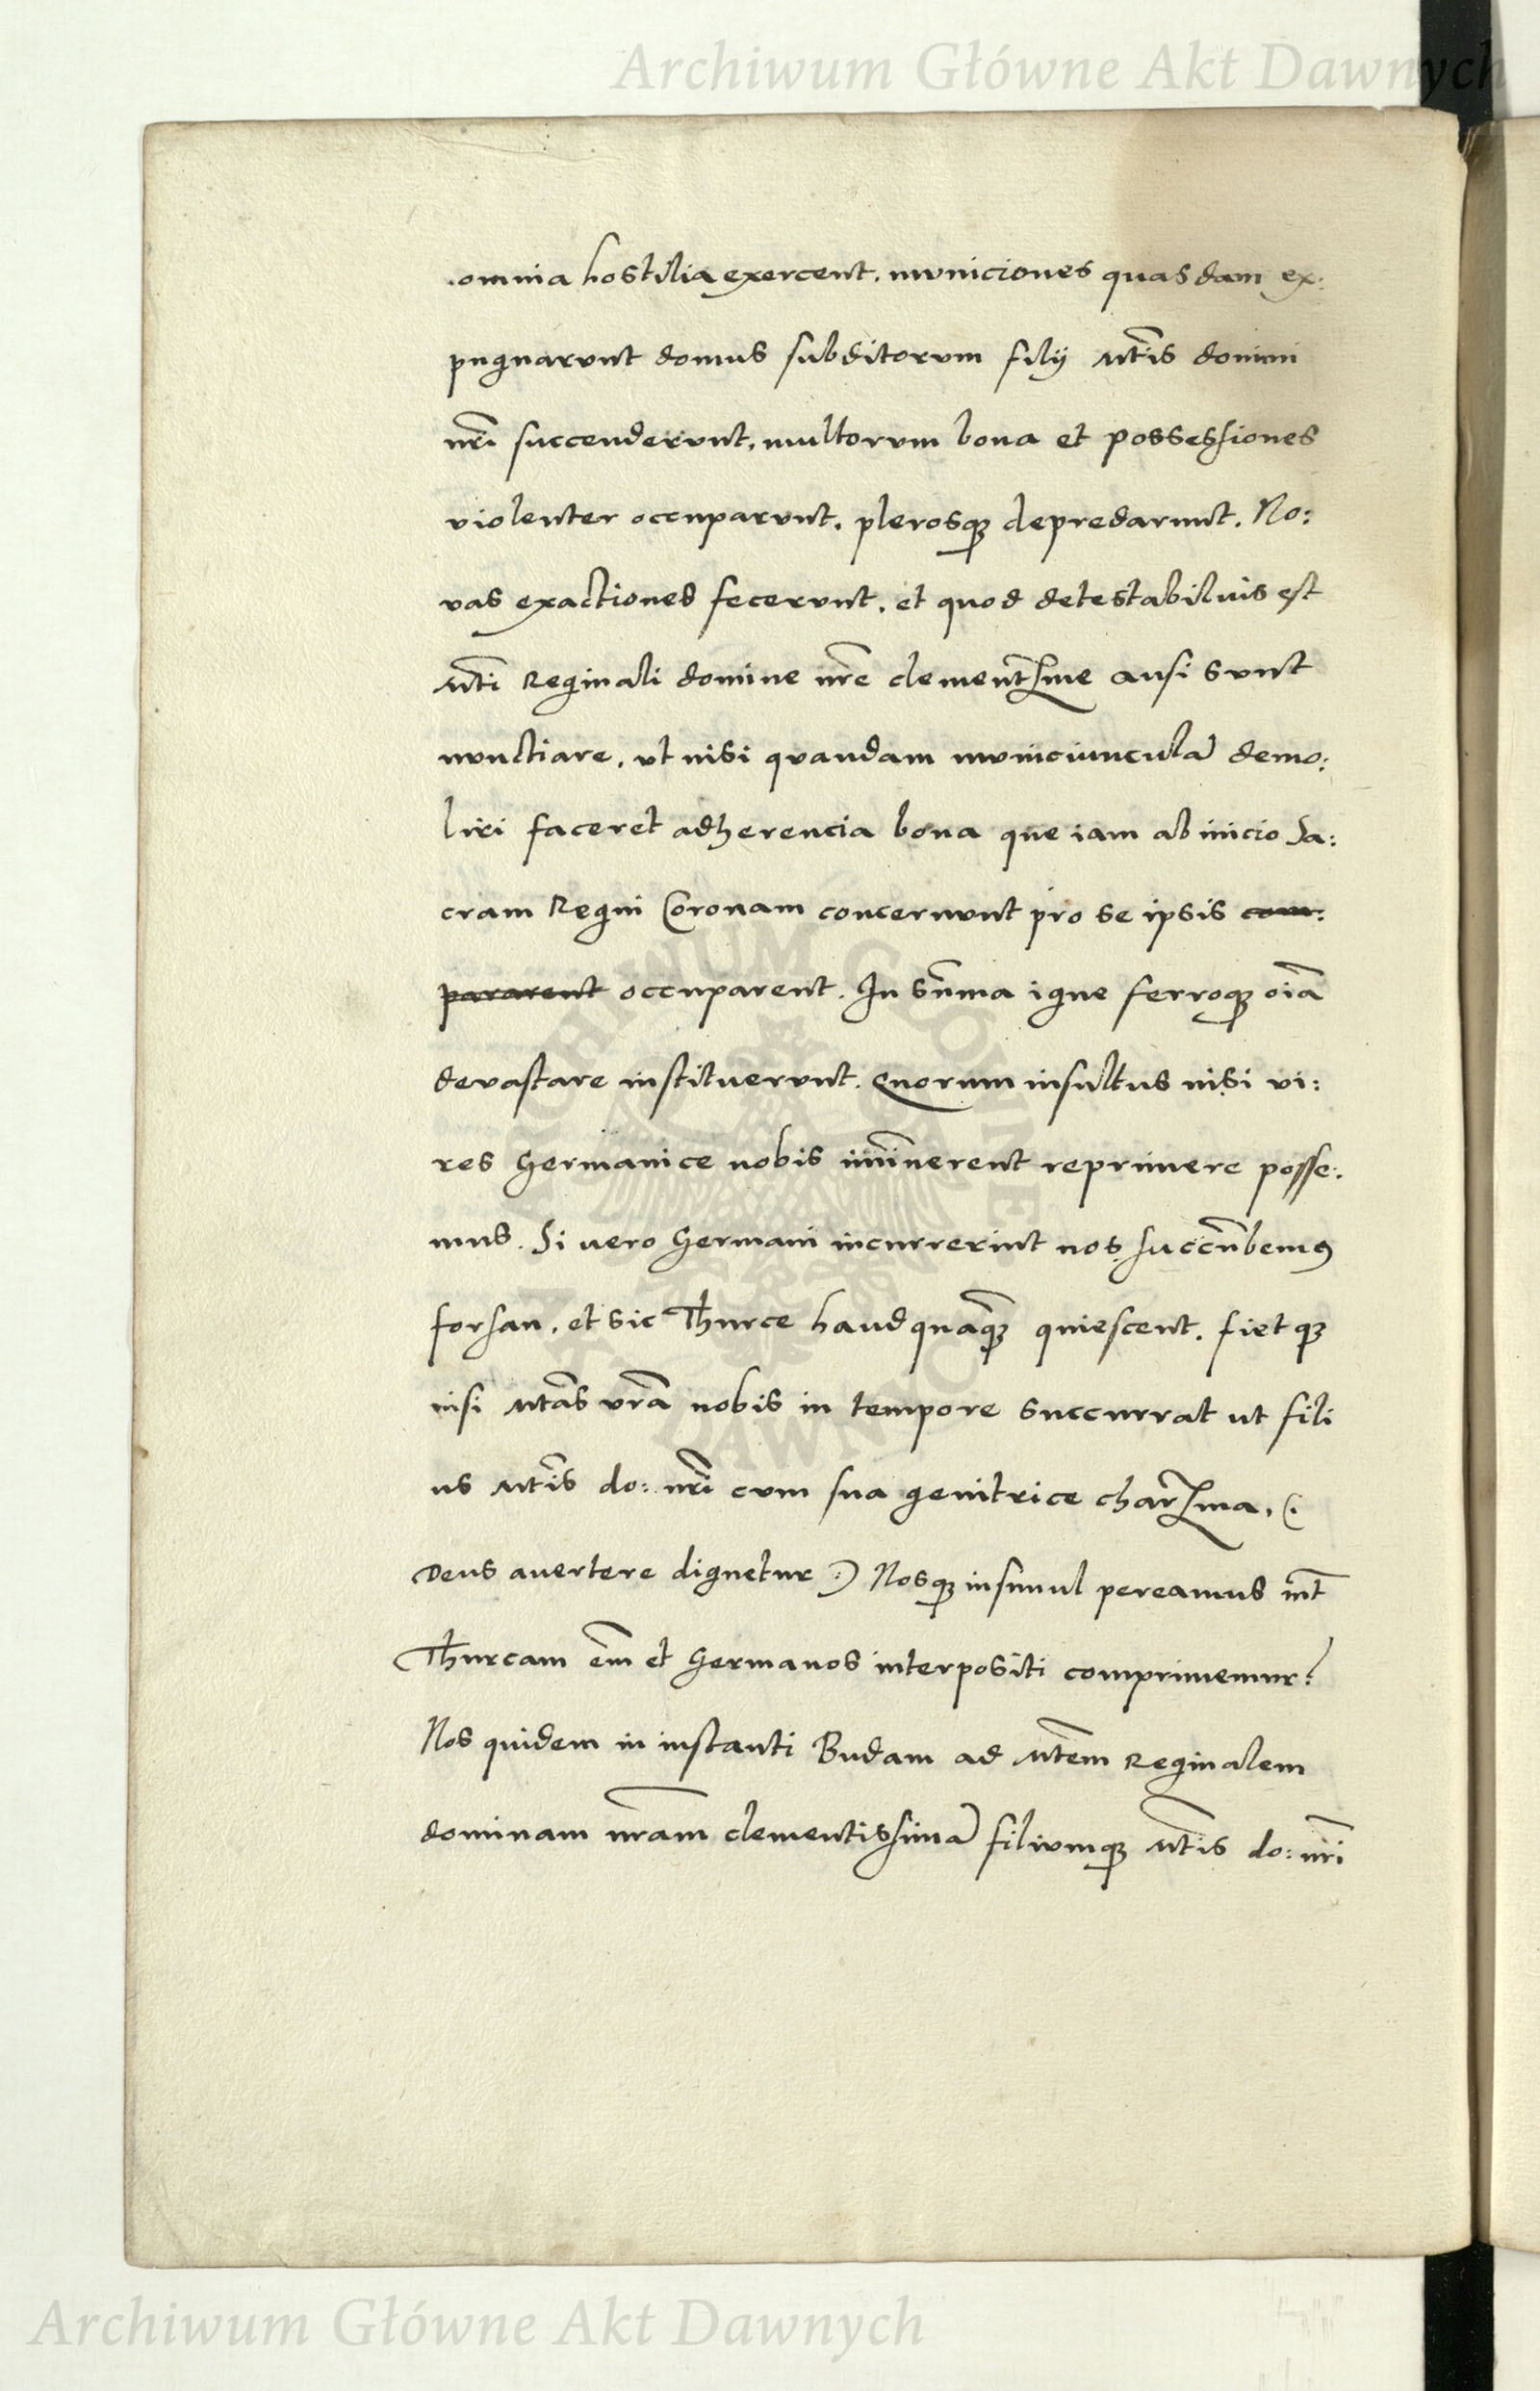 Archiwum Główne Akt Dawnych
omnia hostilia exercent, municiones quasdam ex:
pugnarunt domus subditorum filij Mtis domini
nri succenderunt, multorum bona et possessiones
violenter occuparunt, plerosq3 depredarunt. No:
vas exactiones fecerunt, et quod detestabilius est
Mti Reginali domine nre clementisme ausi sunt
nunctiare, ut nisi quandam municiunculā demo:
liri faceret adherencia bona que iam ab inicio Sa:
cram Regni Coronam concernunt pro se ipsis com:
pararent occuparent. In sūma igne ferroq3 oīa
devastare instituerunt. Quorum insultus nisi vi:
res Germanice nobis iminerent reprimere posse:
mus. Si vero Germani incurrerint nos succūbemus
forsan, et sic Thurce haudquaq3 quiescent. fietq3
nisi Mtas vra nobis in tempore succurrat ut fili
us Mtis do: nri cum sua genitrice charisma, (:
Deus avertere dignetur :) Nosq3 insimul pereamus int
Thurcam em et Germanos interpositi comprimemur:
Nos quidem in instanti Budam ad Mtem Reginalem
dominam nram clementissimā filiumq3 Mtis do: nri
ARCHIWUM GŁÓWNE AKT DAWNYCH
Archiwum Główne Akt Dawnych